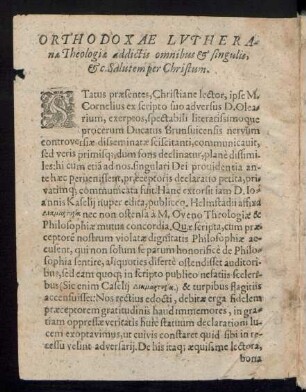 ORTHODOXAE LVTHERA-
næ Theologiæ addictis omnibus & singulis,
&c. Salutem per Christum.
STatus præsentes, Christiane lector, ipse M.
Cornelius ex scripto suo adversus D. Olea-
rium, exerptos, spectabili literatissimoque
procerum Ducatus Brunsuicensis nervum
controversiæ disseminatæ sciscitanti, communicauit,
sed veris primisque, dum fons declinatur, planè dissimi-
les: hi cum etiã ad nos, singulari Dei providentia an-
teha c pervenissent, præceptoris declaratio petita, pri-
vatimque communicata fuit. Hanc extorsit iatro D. Io-
annis Kaselij nuper edita, publiceque Helmstadii affixa
nec non ostensâ a M. Oveno Theologiæ &
Philosophiæ mutua concordia. Quæ scripta, cum præ-
ceptorẽ nostrum violatæ dignitatis Philosophiæ ac-
cusent, qui non solum se parum honorificè de Philo-
sophia sentire, aliquoties disertè ostendisset auditori-
bus, sed eam quoque in scripto publico nefatiis sceleri-
bus (Sic enim Caselij & turpibus flagitiis
accensisset: Nos rectius edocti, debitæ erga fidelem
præceptorem gratitudinis haud immemores, in gra-
tiam oppressæ veritatis huic statuum declarationi lu-
cem exoptavimus, ut cuivis constaret quid sibi in re-
cessu velint adversarij. De his itaque æquissime lectora,
bona